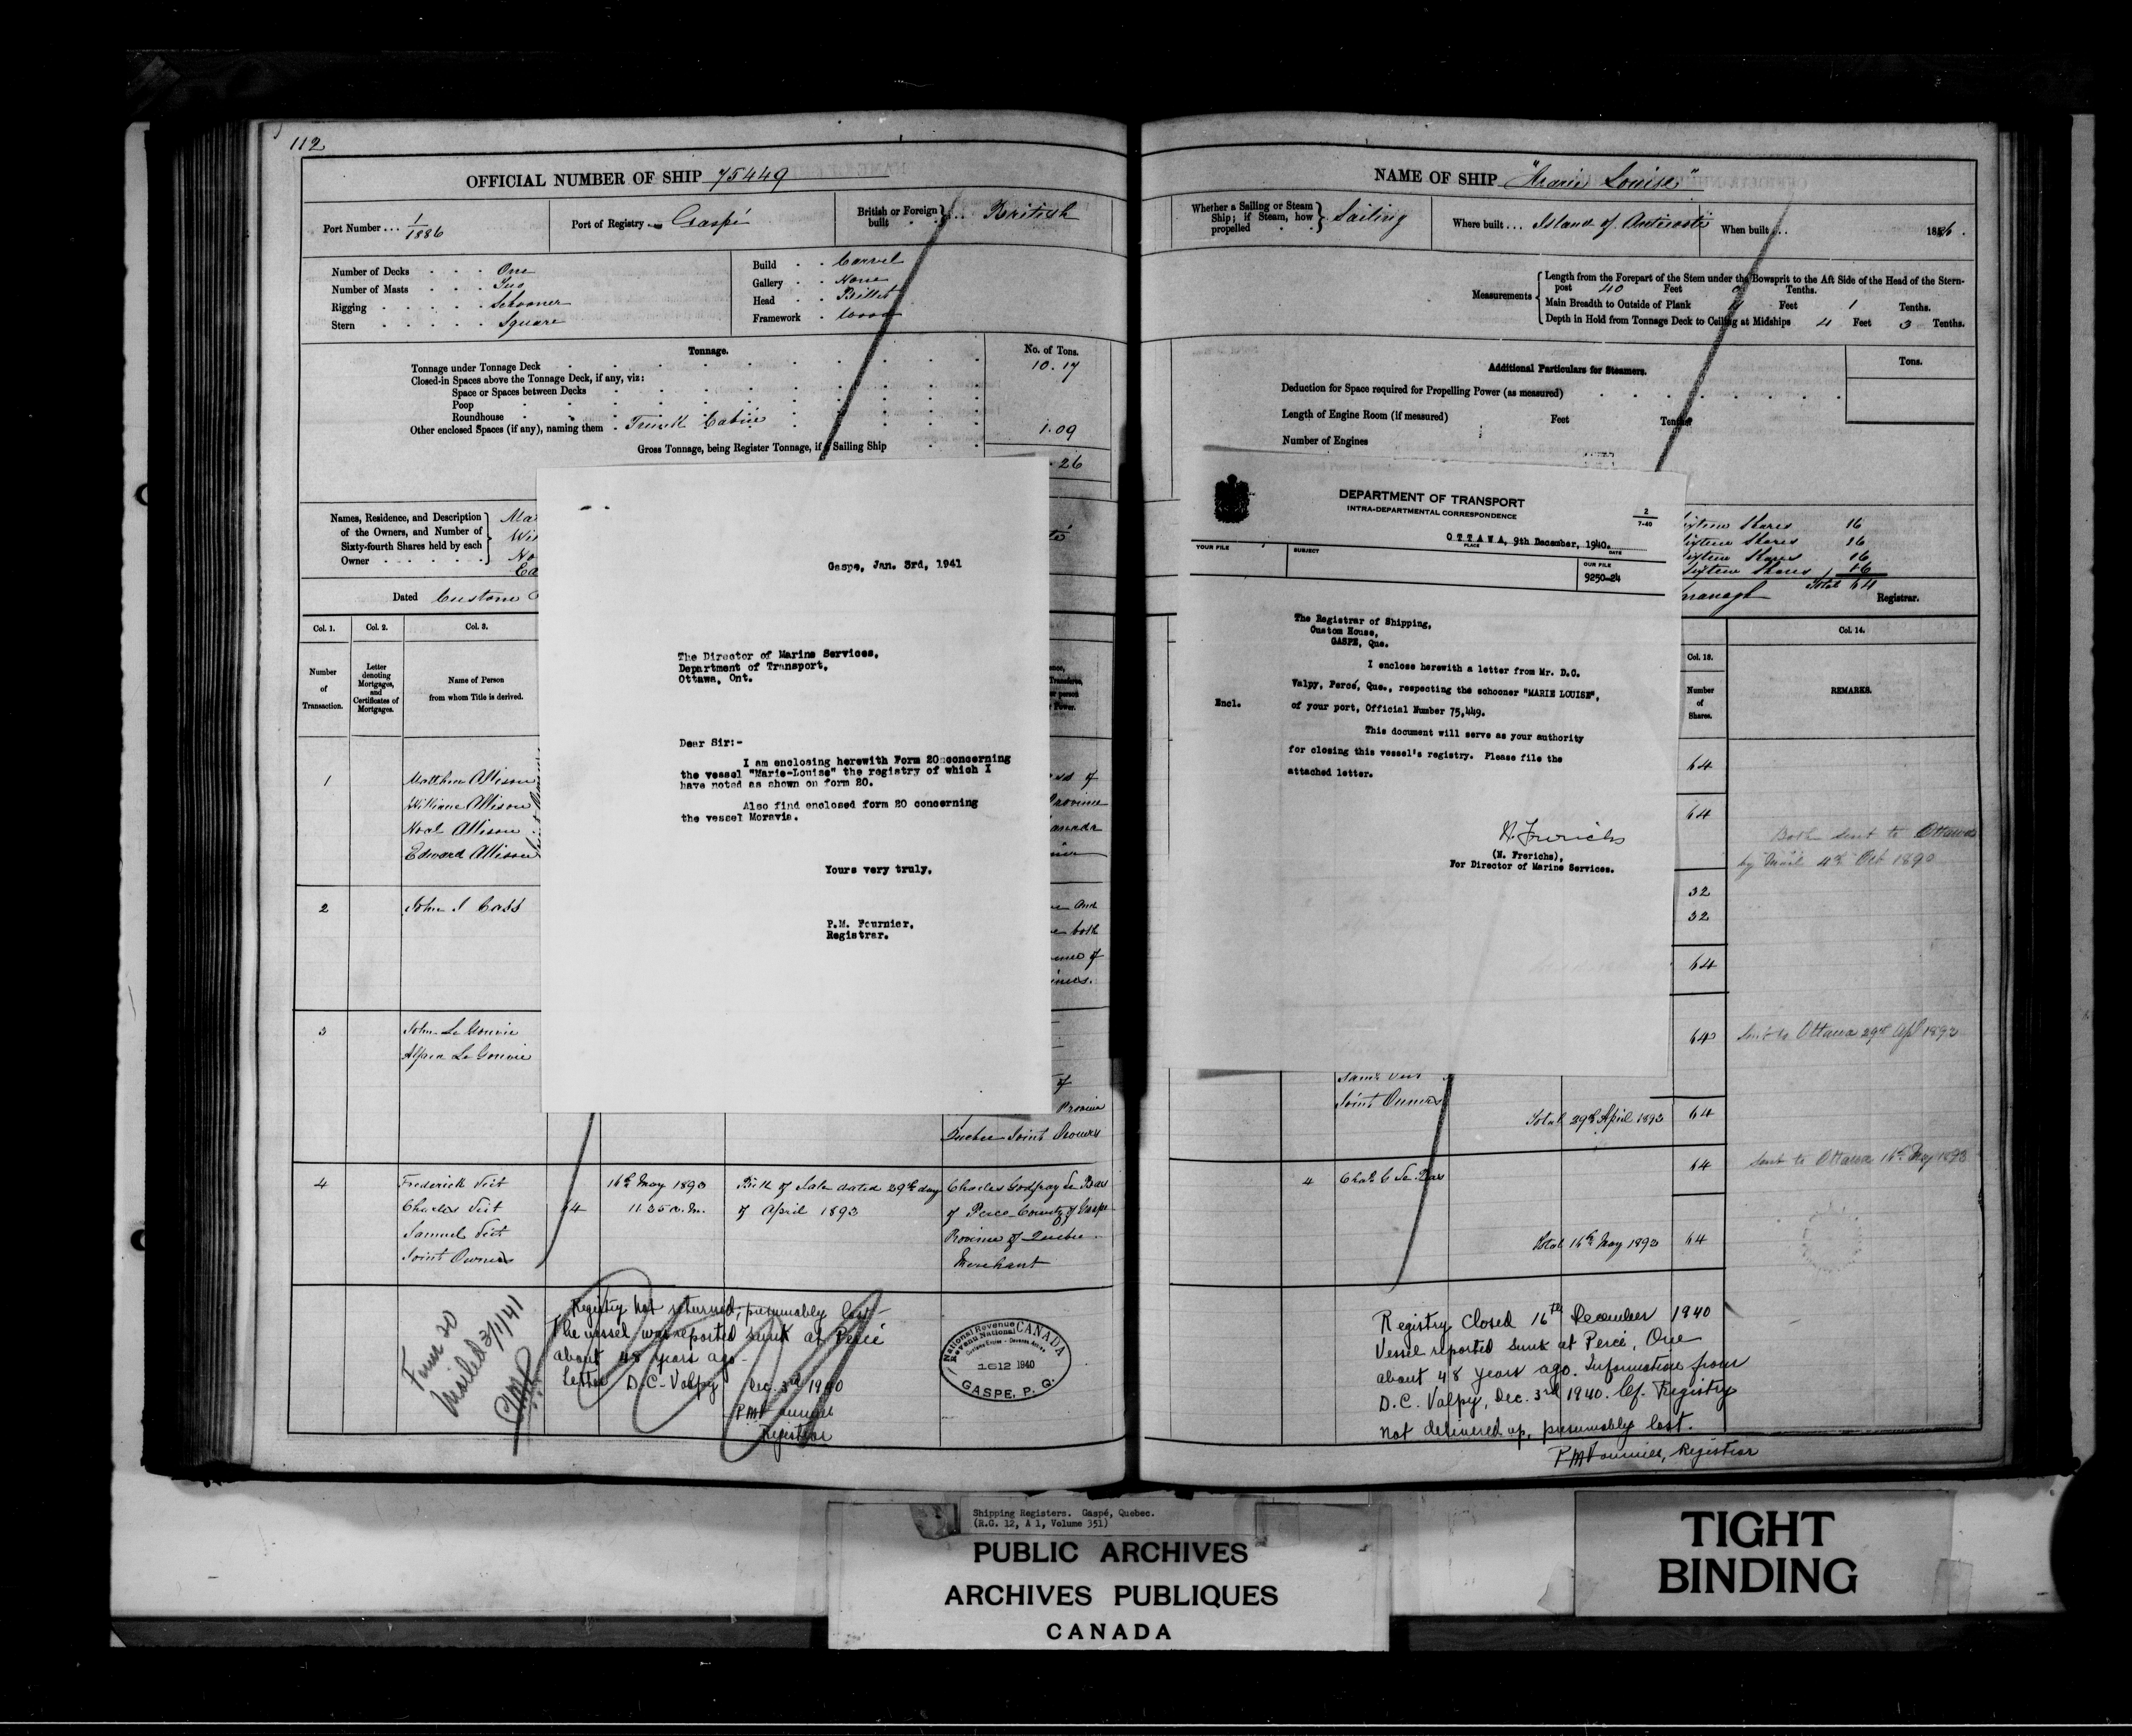 112
OFFICIAL NUMBER OF SHIP 75449
Port Number ... 1/1886
Port of Registry Gaspé
British or Foreign built British
Number of Decks One
Number of Masts Two
Rigging Schooner
Stern Square
Build Carvel
Gallery None
Head Billet
Framework Wood
Tonnage.
No. of Tons.
Tonnage under Tonnage Deck 10.17
Closed-in Spaces above the Tonnage Deck, if any, viz:
Space or Spaces between Decks
Poop
Roundhouse
Other enclosed Spaces (if any), naming them Trunk Cabin 1.09
Gross Tonnage, being Register Tonnage, if a Sailing Ship
.26
Names, Residence, and Description
of the Owners, and Number of
Sixty-fourth Shares held by each
Owner
Dated Customs
Col. 1.
Col. 2.
Col. 3.
Number of Transaction.
Letter denoting Mortgages, and Certificates of Mortgages.
Name of Person from whom Title is derived.
1
Matthew Allison
William Allison
Noel Allison
Edward Allison
2
John S Cass
3
John Le
Quebec Joint Owners
4
Frederick
Charles
Samuel
Joint Owners
64
16th May 1893
11.35 a.m.
Bill of Sale dated 29th day
of April 1893
Charles Godfray Le Bas
of Percé County of Gaspé
Province of Quebec
Merchant
Form 20
Mailed 3/1/41
PMF
Registry not returned; presumably lost
The vessel was reported sunk at Percé
about 48 years ago
Letter D.C. Valpy Dec. 3rd 1940
PM Fournier
Registrar
National Revenue CANADA
Revenu National
1612 1940
GASPE, P. Q.
Gaspe, Jan. 3rd, 1941
The Director of Marine Services,
Department of Transport,
Ottawa, Ont.
Dear Sir:-
I am enclosing herewith Form 20 concerning
the vessel "Marie-Louise" the registry of which I
have noted as shown on form 20.
Also find enclosed form 20 concerning
the vessel Moravia.
Yours very truly,
P.M. Fournier,
Registrar.
NAME OF SHIP "Marie Louise"
Whether a Sailing or Steam Ship; if Steam, how propelled Sailing
Where built ... Island of Anticosti
When built ... 1886.
Measurements
Length from the Forepart of the Stem under the Bowsprit to the Aft Side of the Head of the Stern-
post 40 Feet 0 Tenths.
Main Breadth to Outside of Plank 11 Feet 1 Tenths.
Depth in Hold from Tonnage Deck to Ceiling at Midships 4 Feet 3 Tenths.
Additional Particulars for Steamers.
Tons.
Deduction for Space required for Propelling Power (as measured)
Length of Engine Room (if measured) Feet Tenths
Number of Engines
DEPARTMENT OF TRANSPORT
INTRA-DEPARTMENTAL CORRESPONDENCE
2
7-40
OTTAWA, 9th December, 1940.
PLACE DATE
YOUR FILE
SUBJECT
OUR FILE
9250-24
The Registrar of Shipping,
Custom House,
GASPE, Que.
I enclose herewith a letter from Mr. D.C.
Valpy, Percé, Que., respecting the schooner "MARIE LOUISE",
Encl.
of your port, Official Number 75,449.
This document will serve as your authority
for closing this vessel's registry. Please file the
attached letter.
H. Frerichs
(H. Frerichs),
For Director of Marine Services.
Sixteen Shares 16
Sixteen Shares 16
Sixteen Shares 16
Sixteen Shares 16
Total 64
Registrar.
Col. 13.
Col. 14.
Number of Shares.
REMARKS.
64
64
Both sent to Ottawa
by Mail 4th Oct 1890
32
32
64
64
Sent to Ottawa 29th Apl 1893
Joint Owners
Total 29th April 1893 64
64
Sent to Ottawa 16th May 1893
4
Chas G Le Bas
Total 16th May 1893 64
Registry Closed 16th December 1940
Vessel reported sunk at Percé, Que
about 48 years ago. Information from
D.C. Valpy, Dec. 3rd 1940. Cf. Registry
not delivered up, presumably lost.
PM Fournier, Registrar
Shipping Registers. Gaspé, Quebec.
(R.G. 12, A 1, Volume 351)
PUBLIC ARCHIVES
ARCHIVES PUBLIQUES
CANADA
TIGHT
BINDING